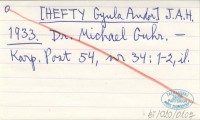 [HEFTY Gyula Andor] J.A.H.
1933. Dr. Michael Guhr. —
Karp. Post 54, no 34: 1-2, il.